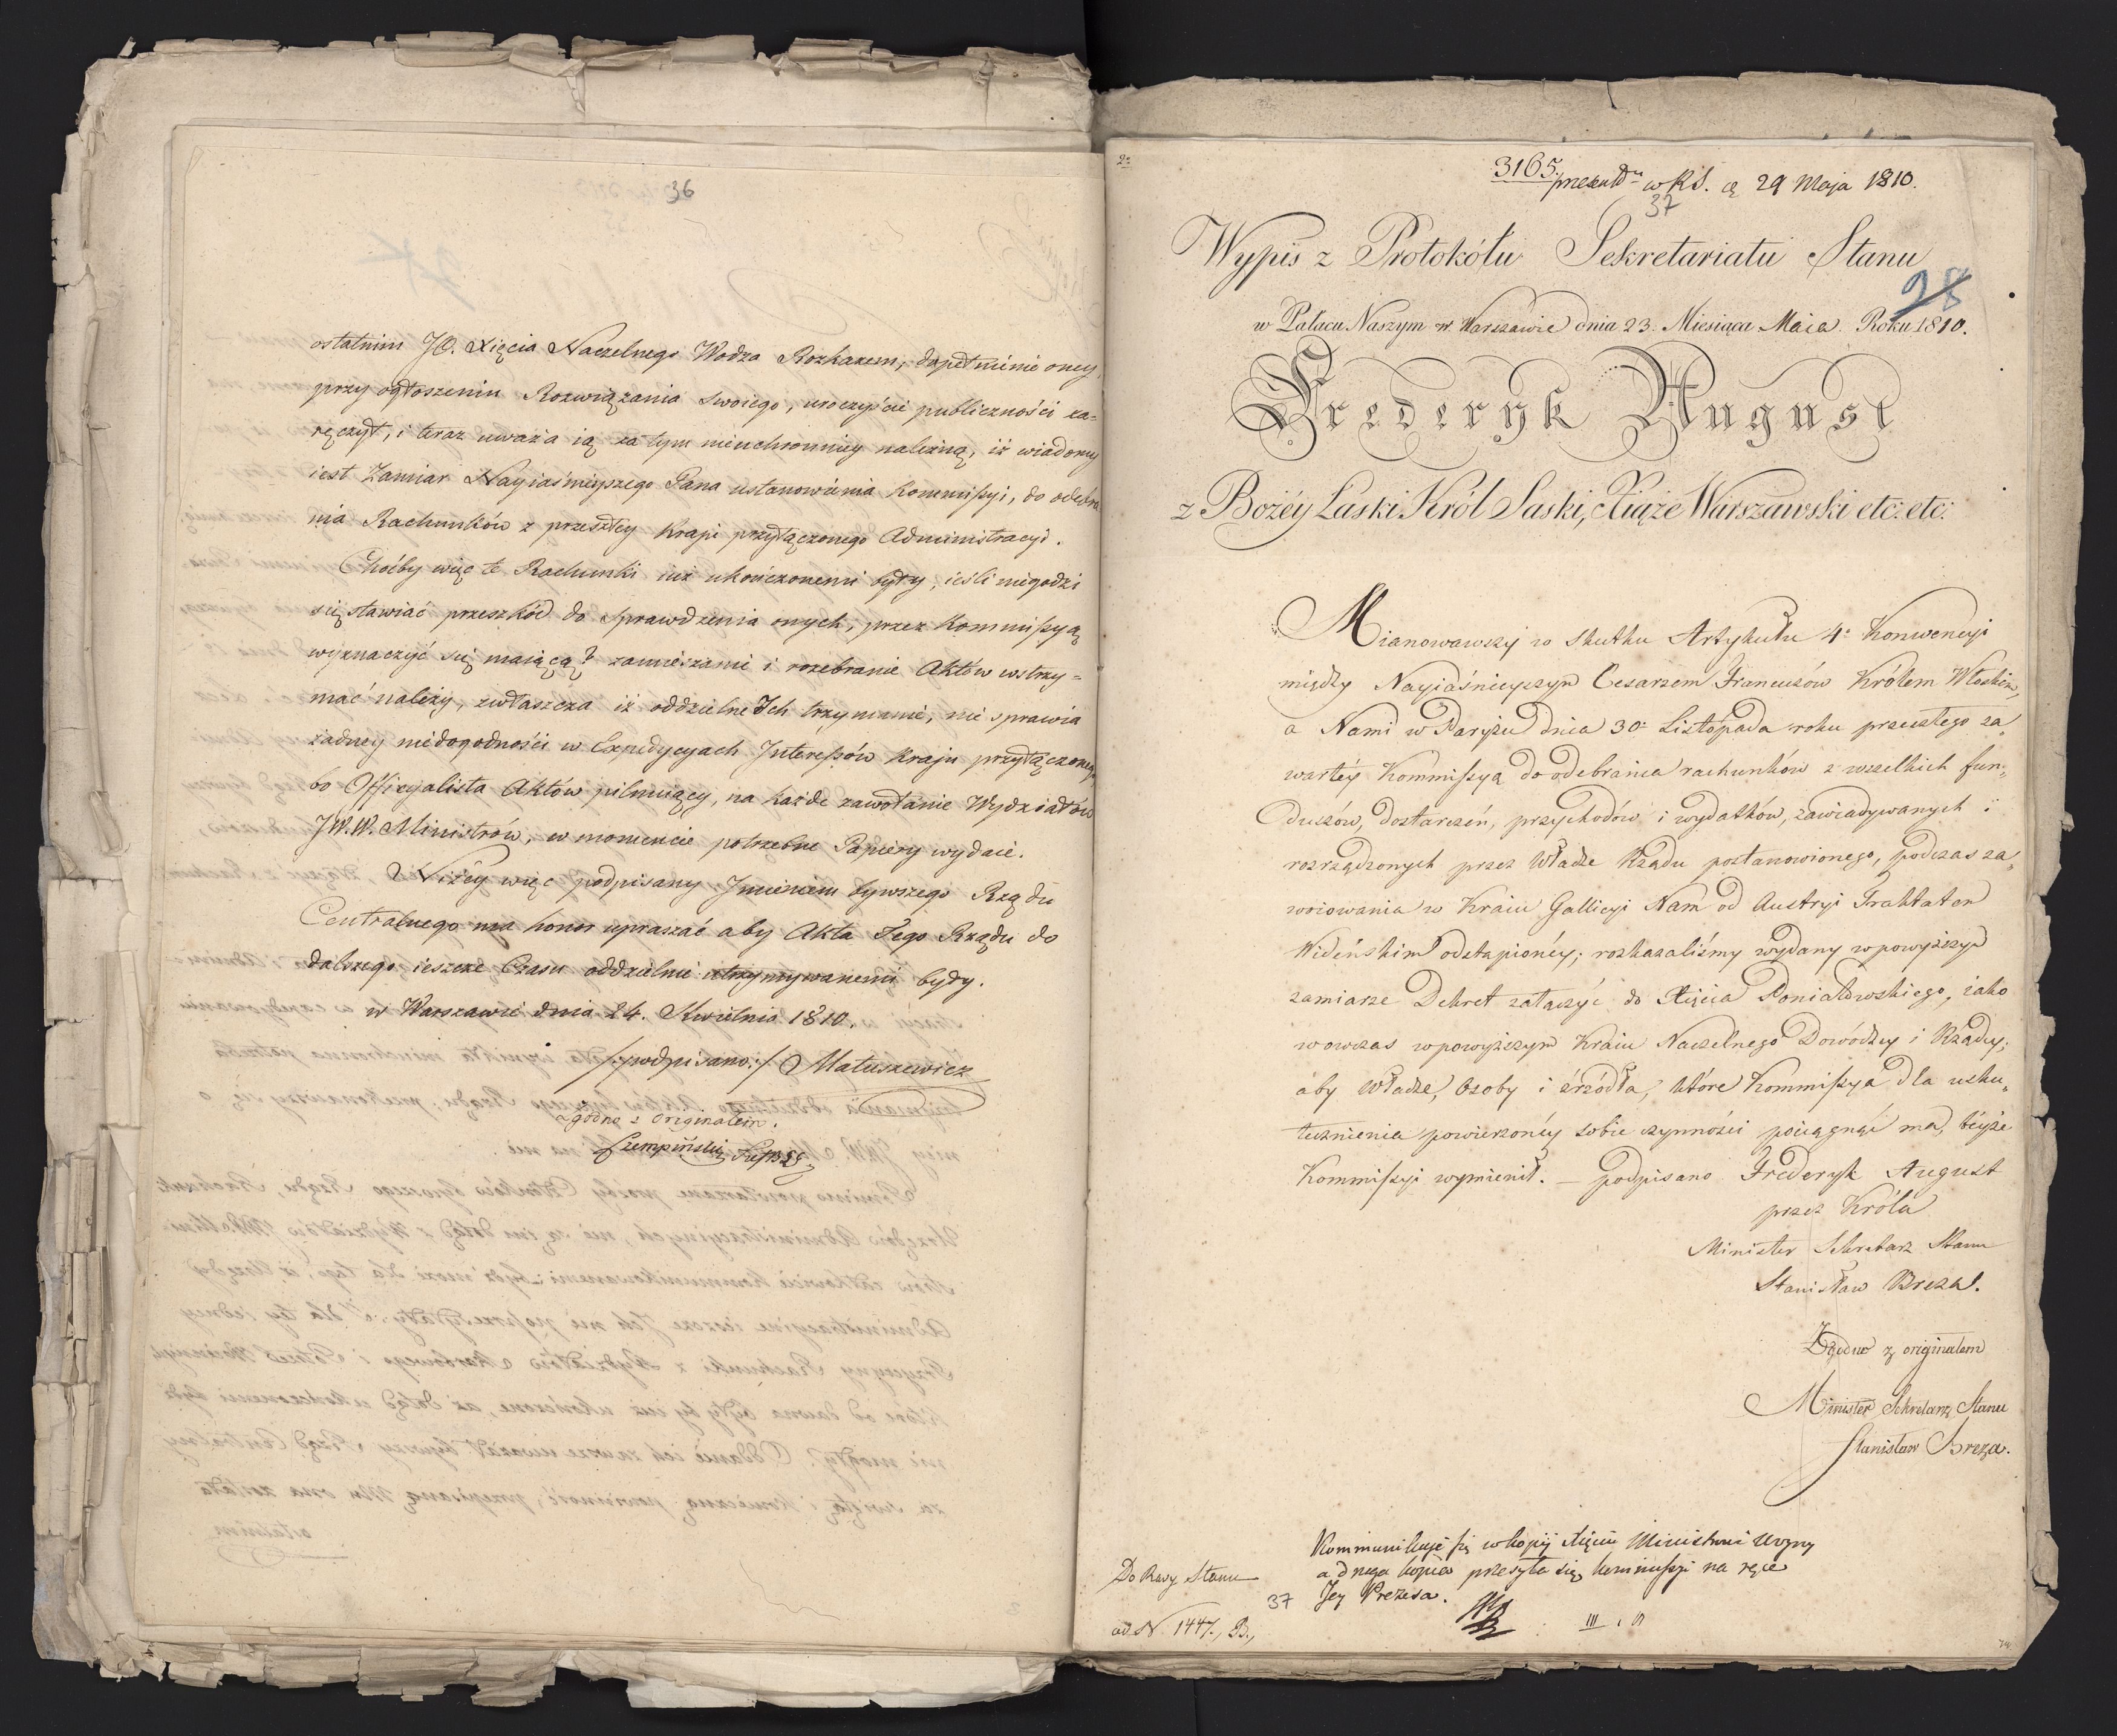 36
ostatnim JO. Xięcia Naczelnego Wodza Rozkazem, dopełnienie oney,
przy ogłoszeniu Rozwiązania swoiego, uroczyście publiczności za-
ręczył, i teraz uważa ią za tym nieuchronniey należną, iż wiadomy
iest Zamiar Nayiaśnieyszego Pana ustanowienia Kommissyi, do odebra
nia Rachunków z przeszłey Kraju przyłączonego Administracyi.
Choćby więc te Rachunki iuż ukończonemi były, ieśli niegodzi
się stawiać przeszkód do sprawdzenia onych, przez Kommissyą
wyznaczyć się maiącą? zamieszanie i rozebranie Aktów wstrzy=
mać należy, zwłaszcza iż oddzielne Ich trzymanie, nie sprawia
żadney niedogodności w Expedycyach Interessów Kraju przyłączonego,
bo Officyalista Aktów pilnuiący, na każde zawołanie Wydziałów
JW.W. Ministrów, w momencie potrzebne Papiery wydaie.
Niżey więc podpisany Imieniem bywszego Rządu
Centralnego ma honor upraszać aby Akta Tego Rządu do
dalszego ieszcze Czasu oddzielnie utrzymywanemi były.
w Warszawie dnia 24. Kwietnia 1810.
/:podpisano:/ Matuszewicz
zgodno z Originałem.
Szempiński
2
3165. w RS. d. 29 Maja 1810.
37
Wypis z Protokółu Sekretariatu Stanu
28
w Pałacu Naszym w Warszawie dnia 23. Miesiąca Maia Roku 1810.
Frederyk August
z Bożéy Łaski Król Saski, Xiąże Warszawski etc: etc:
Mianowawszy w Skutku Artykułu 4º Konwencyi
między Nayiaśnieyszym Cesarzem Francuzów Królem Włoskim,
a Nami w Paryżu dnia 30º Listopada roku przeszłego za„
wartéy Kommissyą do odebrania rachunków z wszelkich fun„
duszów, dostarczeń, przychodów i wydatków, zawiadywanych i
rozrządzonych przez Władze Rządu postanowionego, podczas za„
woiowania w Kraiu Gallicyi Nam od Austryi Traktatem
Wideńskim odstąpionéy; rozkazaliśmy wydany w powyższym
zamiarze Dekret załączyć do Xięcia Poniatowskiego, iako
wowczas w powyższym Kraiu Naczelnego Dowódzcy i Rządcy;
aby Władze, Osoby i źrzódła, które Kommissya dla usku„
tecznienia powierzonéy sobie czynności pociągnąć ma, téyże
Kommissyi wymienił. – podpisano Frederyk August
przez Króla
Minister Sekretarz Stanu
Stanisław Breza.
Zgodno z originałem
Minister Sekretarz Stanu
Stanisław Breza.
Kommunikuje się w kopij Xięciu Ministrowi Woyny
a druga kopia przesyła się kommissyi na ręce
Jey Prezesa.
Do Rady Stanu
37
ad N 1447., B.,